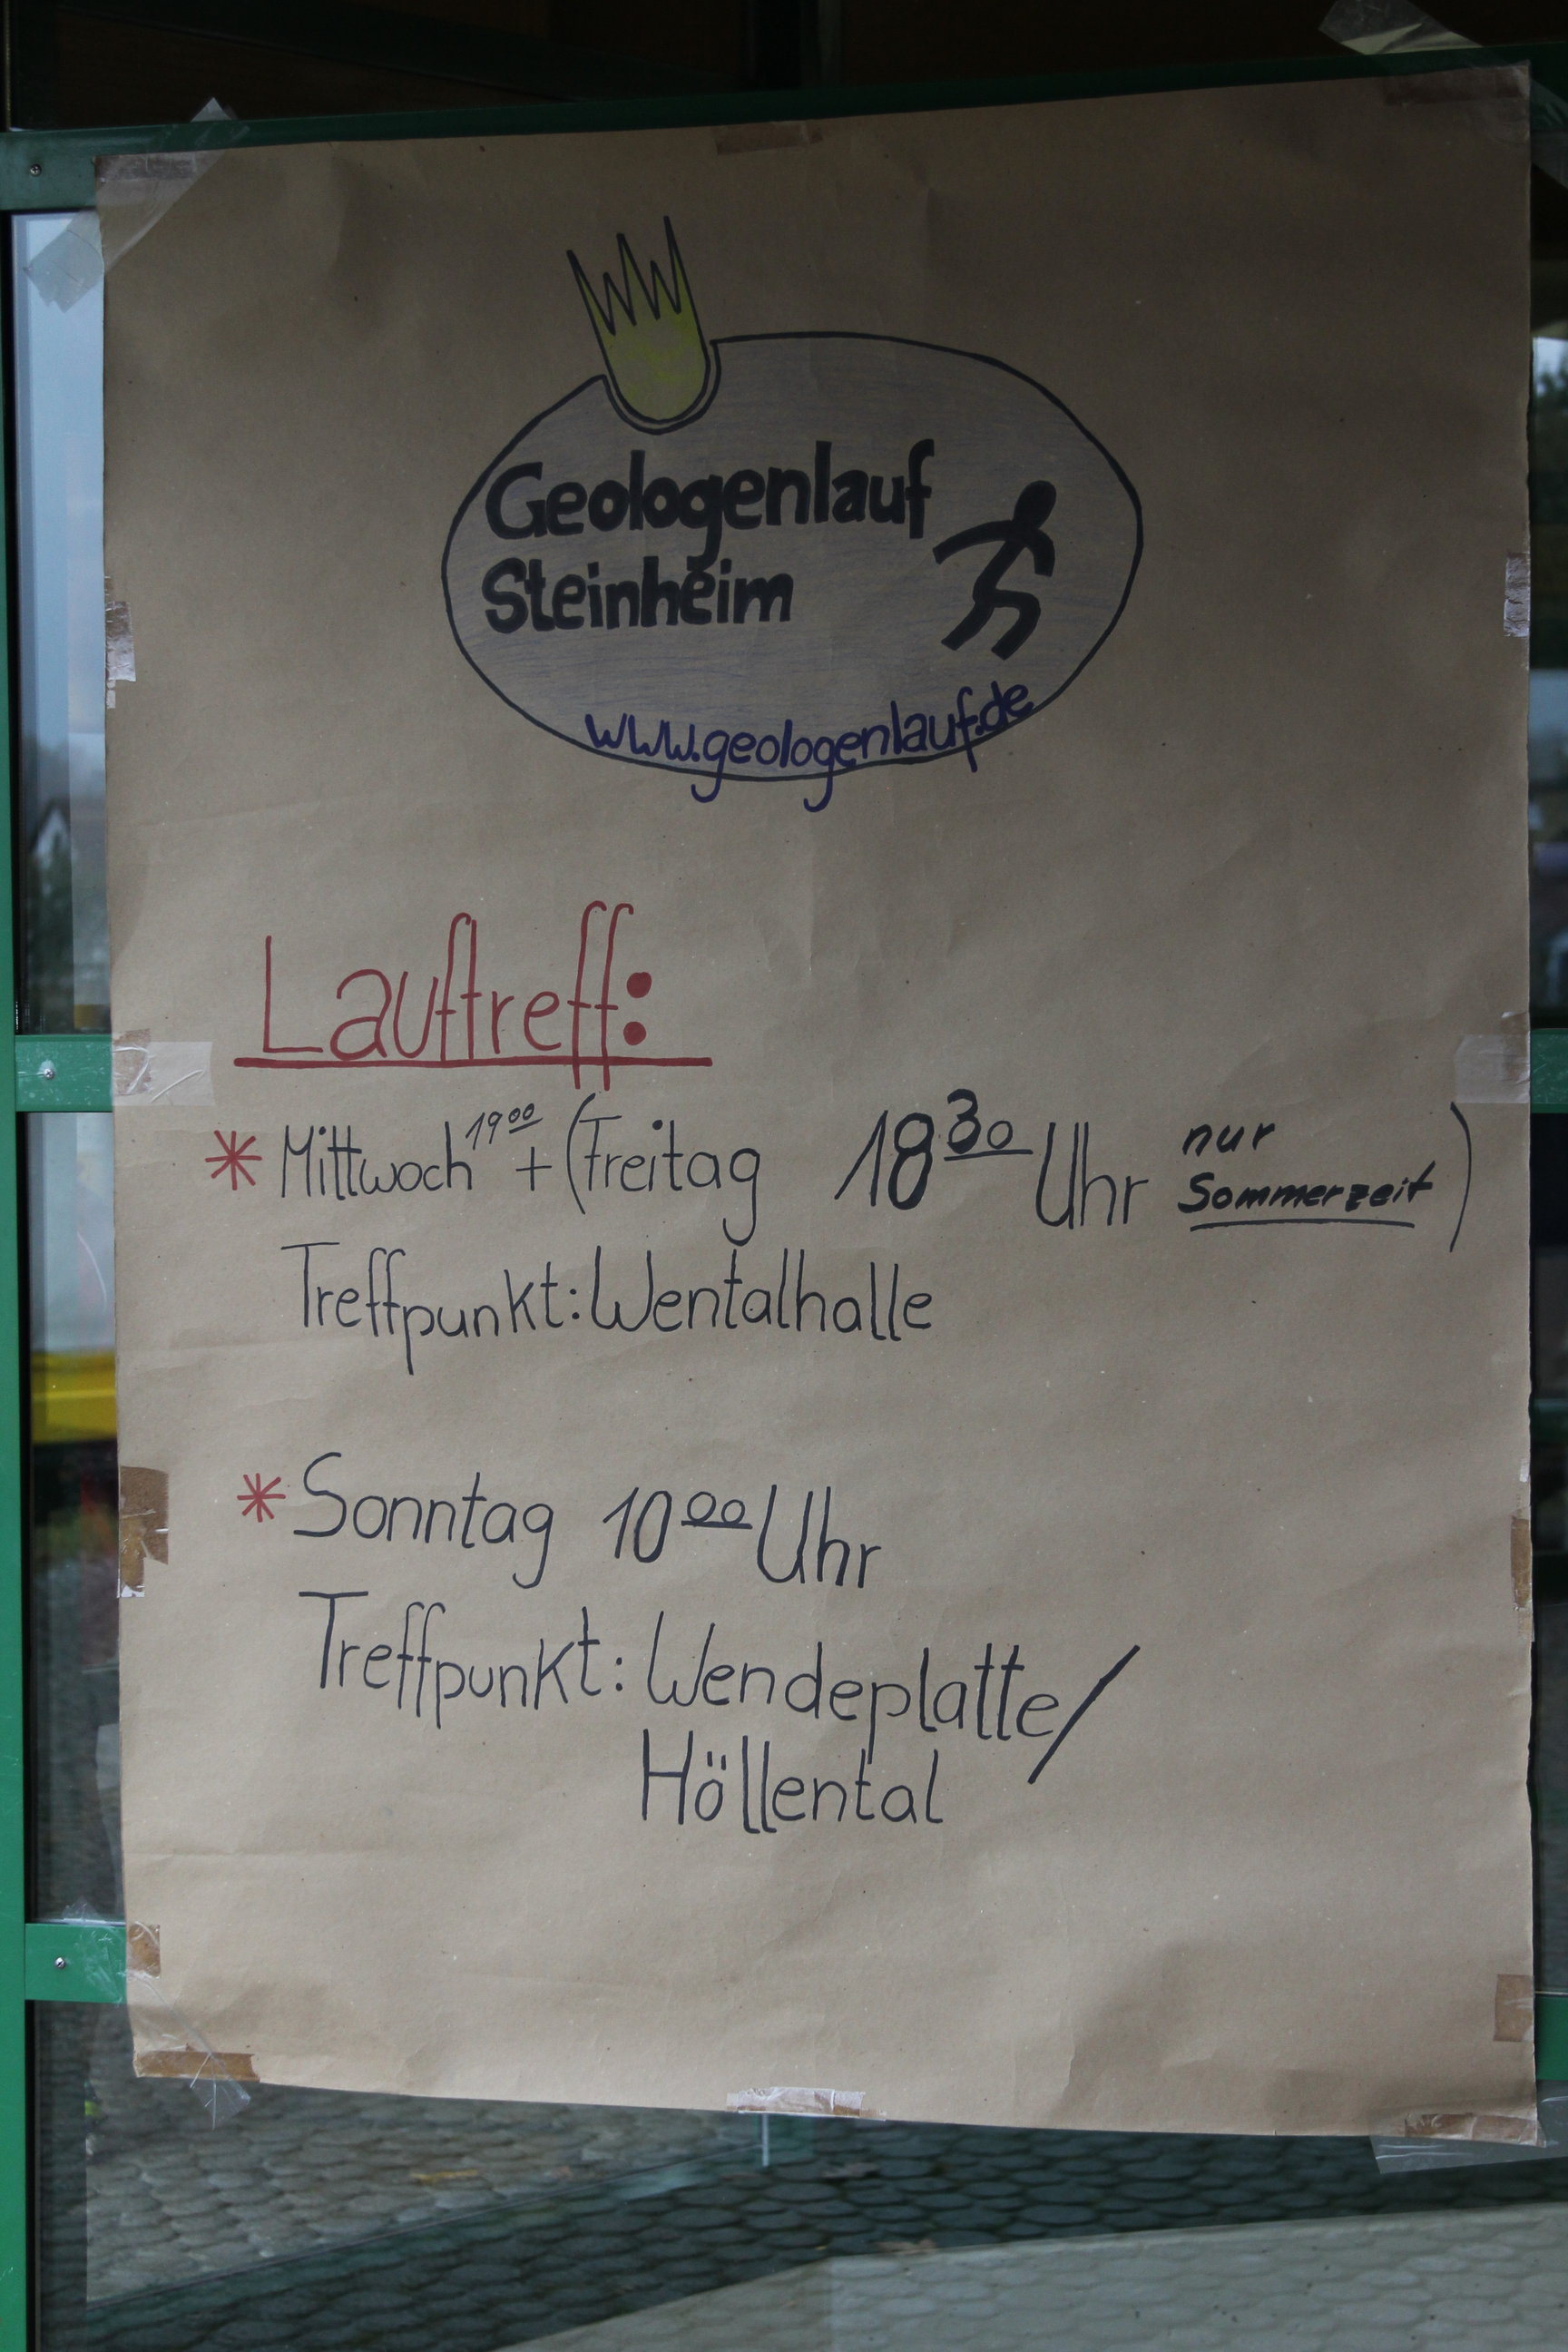 Geologenlauf
Steinheim
www.geologenlauf.de
Lauftreff:
* Mittwoch 19 00 + (Freitag 18 30 Uhr nur Sommerzeit)
Treffpunkt: Wentalhalle
* Sonntag 10 00 Uhr
Treffpunkt: Wendeplatte/
Höllental